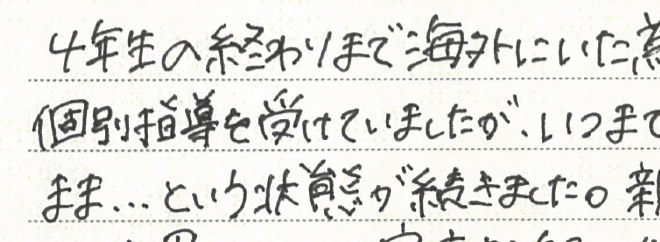 4年生の終わりまで海外にいた為
個別指導を受けていましたが、いつまで
まま...という状態が続きました。親